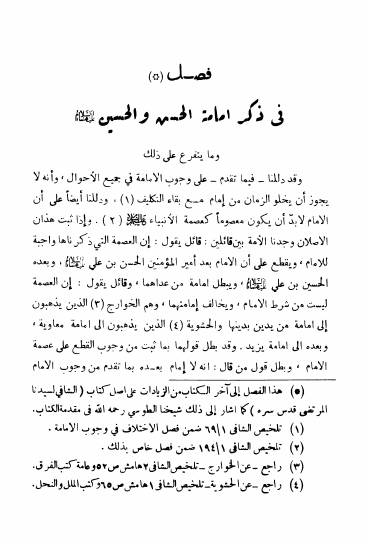 فصل (٥)
فى ذكر امامة الحسن والحسين عليهما السلام
وما يتفرع على ذلك
وقد دللنا – فيما تقدم – على وجوب الامامة في جميع الأحوال ، وأنه لا
يجوز أن يخلو الزمان من إمام مع بقاء التكليف (١) ، ودللنا أيضاً على أن
الامام لابدّ أن يكون معصوماً كعصمة الأنبياء (٢) . وإذا ثبت هذان
الاصلان وجدنا الأمة بين قائلين : قائل يقول : إن العصمة التي ذكرناها واجبة
للامام ، ويقطع على أن الامام بعد أمير المؤمنين الحسن بن علي ، وبعده
الحسين بن علي ، ويبطل امامة من عداهما ، وقائل يقول : إن العصمة
ليست من شرط الامام ، ويخالف إمامتهما ، وهم الخوارج (٣) الذين يذهبون
إلى امامة من يدين بدينها والحشوية (٤) الذين يذهبون الى امامة معاوية ،
وبعده الى امامة يزيد . وقد بطل قولهما بما ثبت من وجوب القطع على عصمة
الامام ، وبطل قول من قال : انه لا إمام بعده بما تقدم من وجوب الامام
(٥) هذا الفصل إلى آخر الكتاب من الزيادات على اصل كتاب ( الشافي لسيدنا
المرتضى قدس سره ) كما اشار إلى ذلك شيخنا الطوسي رحمه الله في مقدمة الكتاب.
(١) تلخيص الشافي ٦٩/١ ضمن فصل الاختلاف في وجوب الامامة .
(٢) تلخيص الشافي ١٩٤/١ ضمن فصل خاص بذلك .
(٣) راجع – عن الخوارج – تلخيص الشافي ٢ هامش ص ٥٢ وعامة كتب الفرق.
(٤) راجع – عن الحشوية – تلخيص الشافي ١ هامش ص ٦٥ وكتب الملل والنحل.